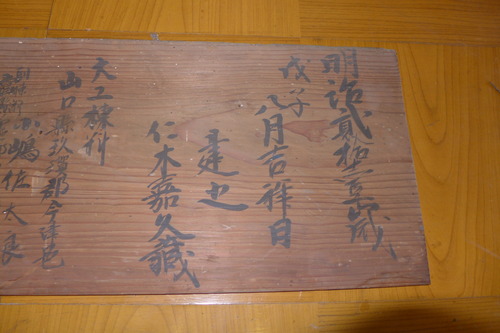 明治貳拾壹歳
戊子
八月吉祥日
建也
仁木嘉久藏
大工棟梁
山口縣玖珂郡今津邑
嶋佐太良